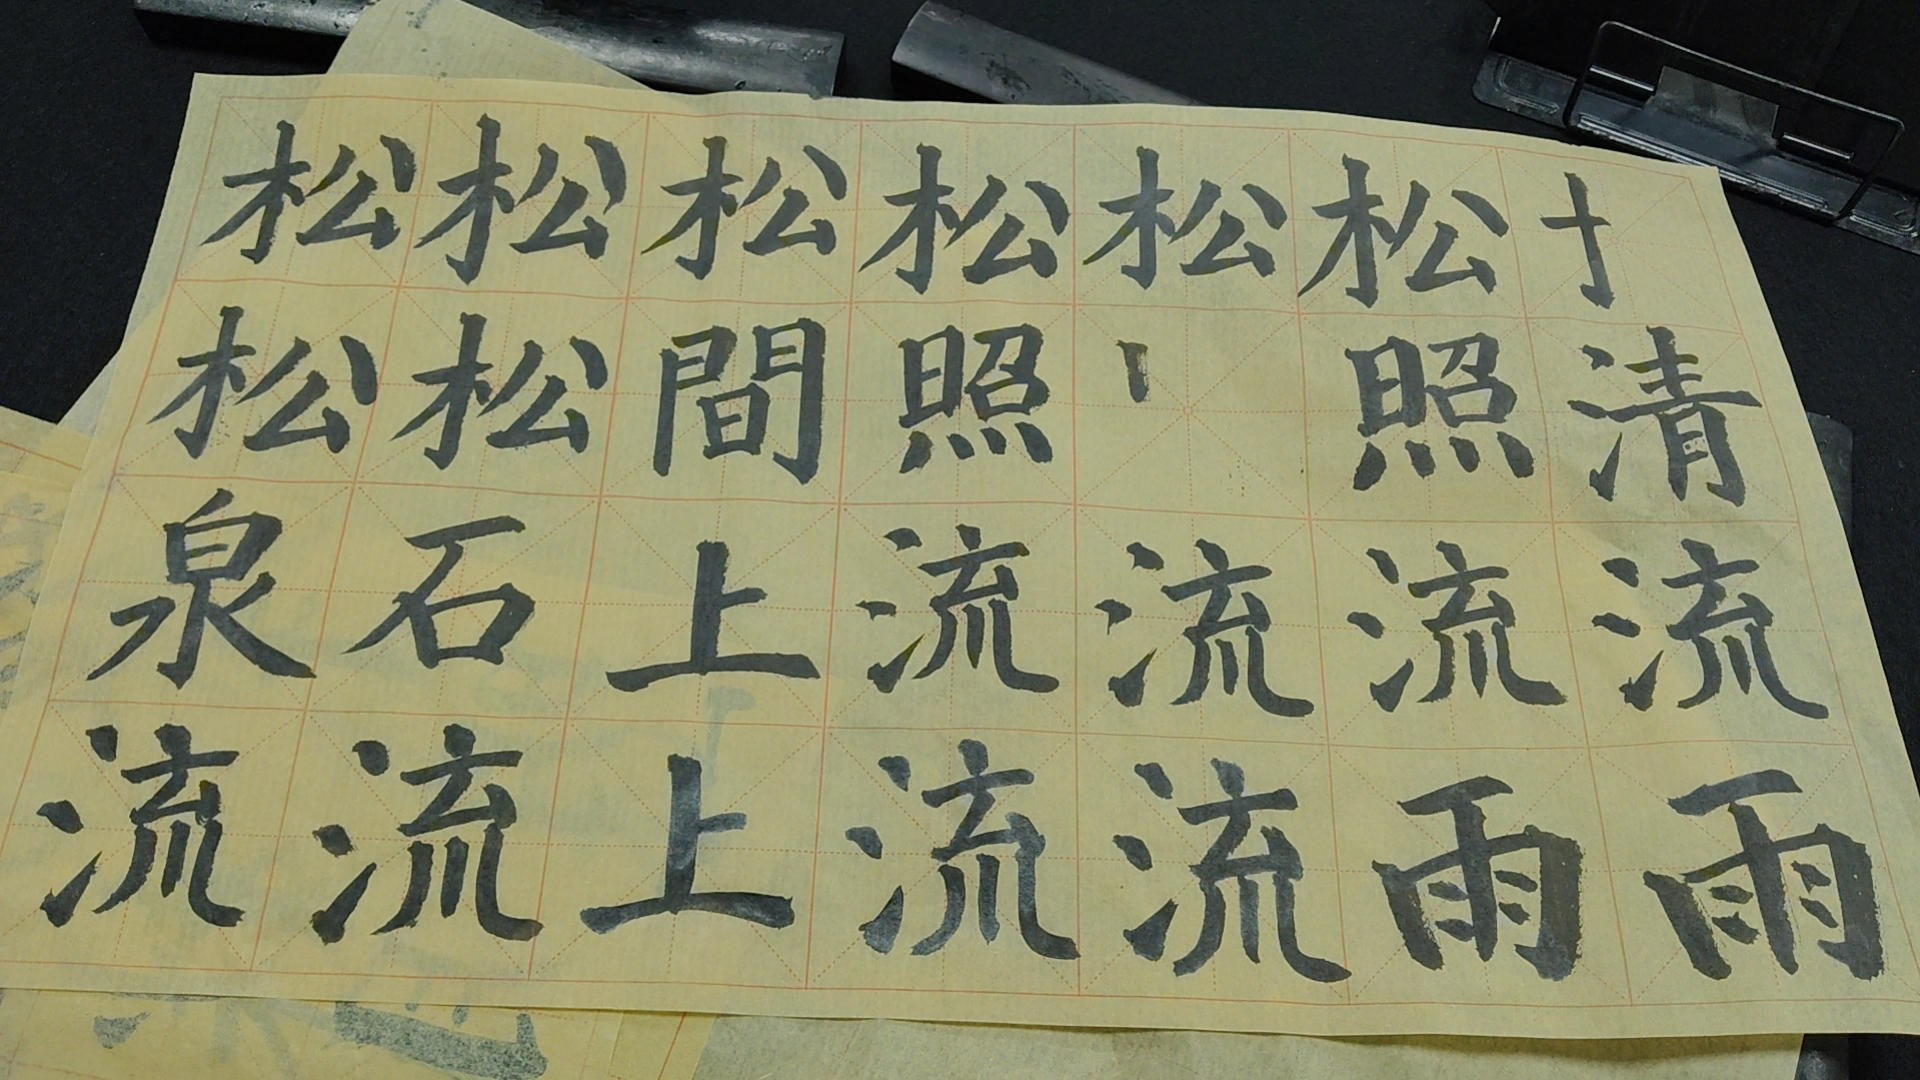 松松松松松松
松松間照照清
泉石上流流流流
流流上流流雨雨